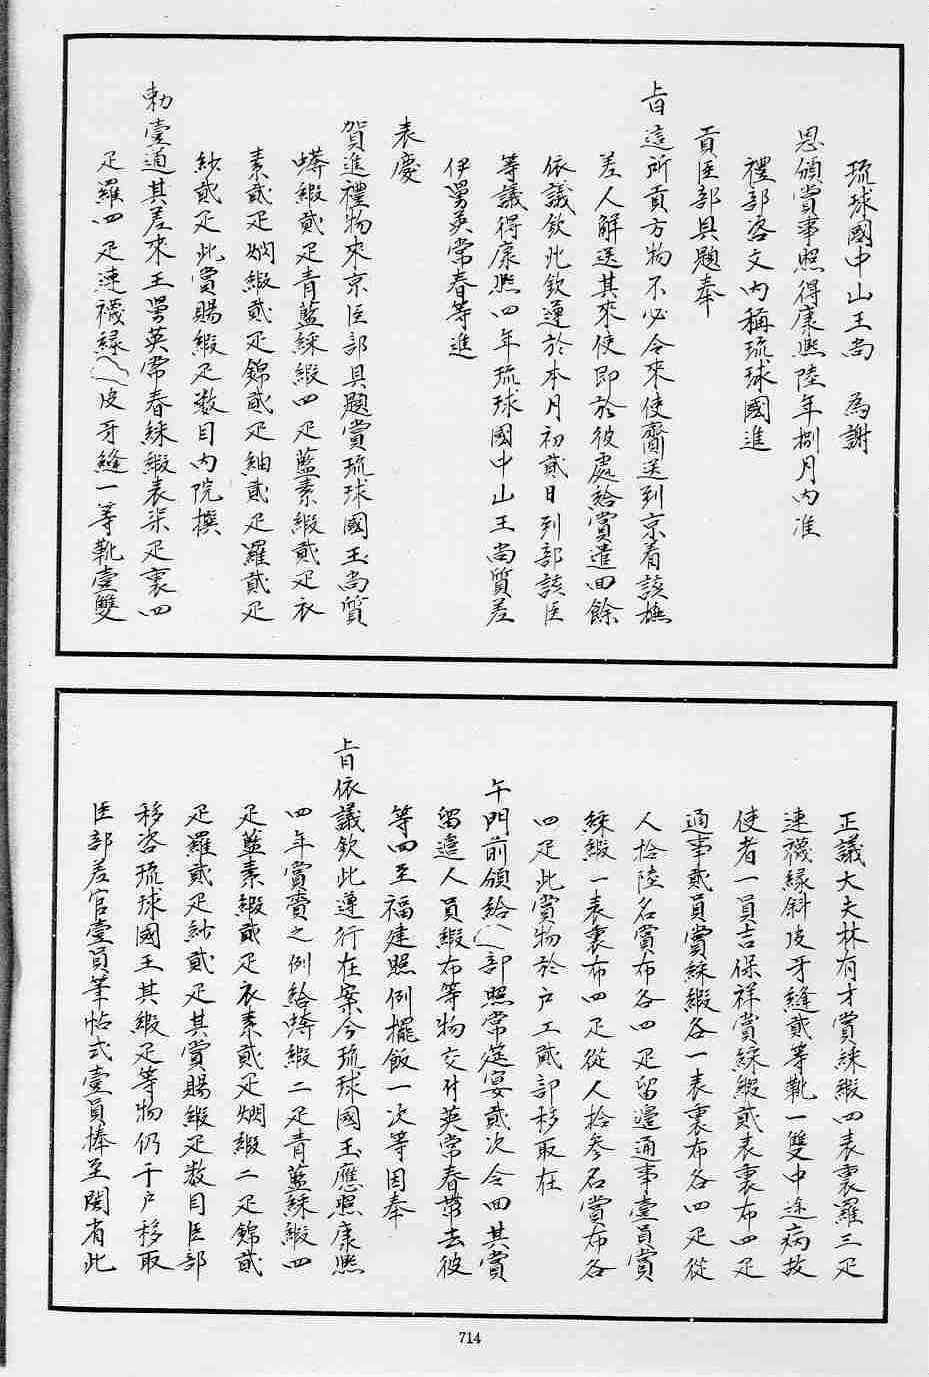 琉球國中山王尚　為謝
恩頒賞事照得康熙陸年捌月內准
禮部咨文內稱琉球國進
貢臣部具題奉
旨這所貢方物不必令來使齎送到京着該撫
差人解送其來使即於彼處給賞遣回餘
依議欽此欽遵於本月初貳日到部該臣
等議得康熙四年琉球國中山王尚質差
伊舅英常春等進
表慶
賀進禮物來京臣部具題賞琉球國王尚質
蟒緞貳疋青藍綵緞四疋藍素緞貳疋衣
素貳疋燜緞貳疋錦貳疋紬貳疋羅貳疋
紗貳疋此賞賜緞疋數目內院撰
勅壹道其差來王舅英常春綵緞表柒疋裏四
疋羅四疋連襪緣皮牙縫一等靴壹雙
正議大夫林有才賞綵緞四表裏羅三疋
連襪緣斜皮牙縫貳等靴一雙中途病故
使者一員吉保祥賞綵緞貳表裏布四疋
通事貳員賞綵緞各一表裏布各四疋從
人拾陸名賞布各四疋留邊通事壹員賞
綵緞一表裏布四疋從人拾參名賞布各
四疋此賞物於戶工貳部移取在
午門前頒給部照常筵宴貳次令回其賞
留邊人員緞布等物交付英常春帶去彼
等回至福建照例擺飯一次等因奉
旨依議欽此遵行在案今琉球國王應照康熙
四年賞賚之例給蟒緞二疋青藍綵緞四
疋藍素緞貳疋衣素貳疋燜緞二疋錦貳
疋羅貳疋紗貳疋其賞賜緞疋數目臣部
移咨琉球國王其緞疋等物仍于戶移取
臣部差官壹員筆帖式壹員捧至閩有此
714